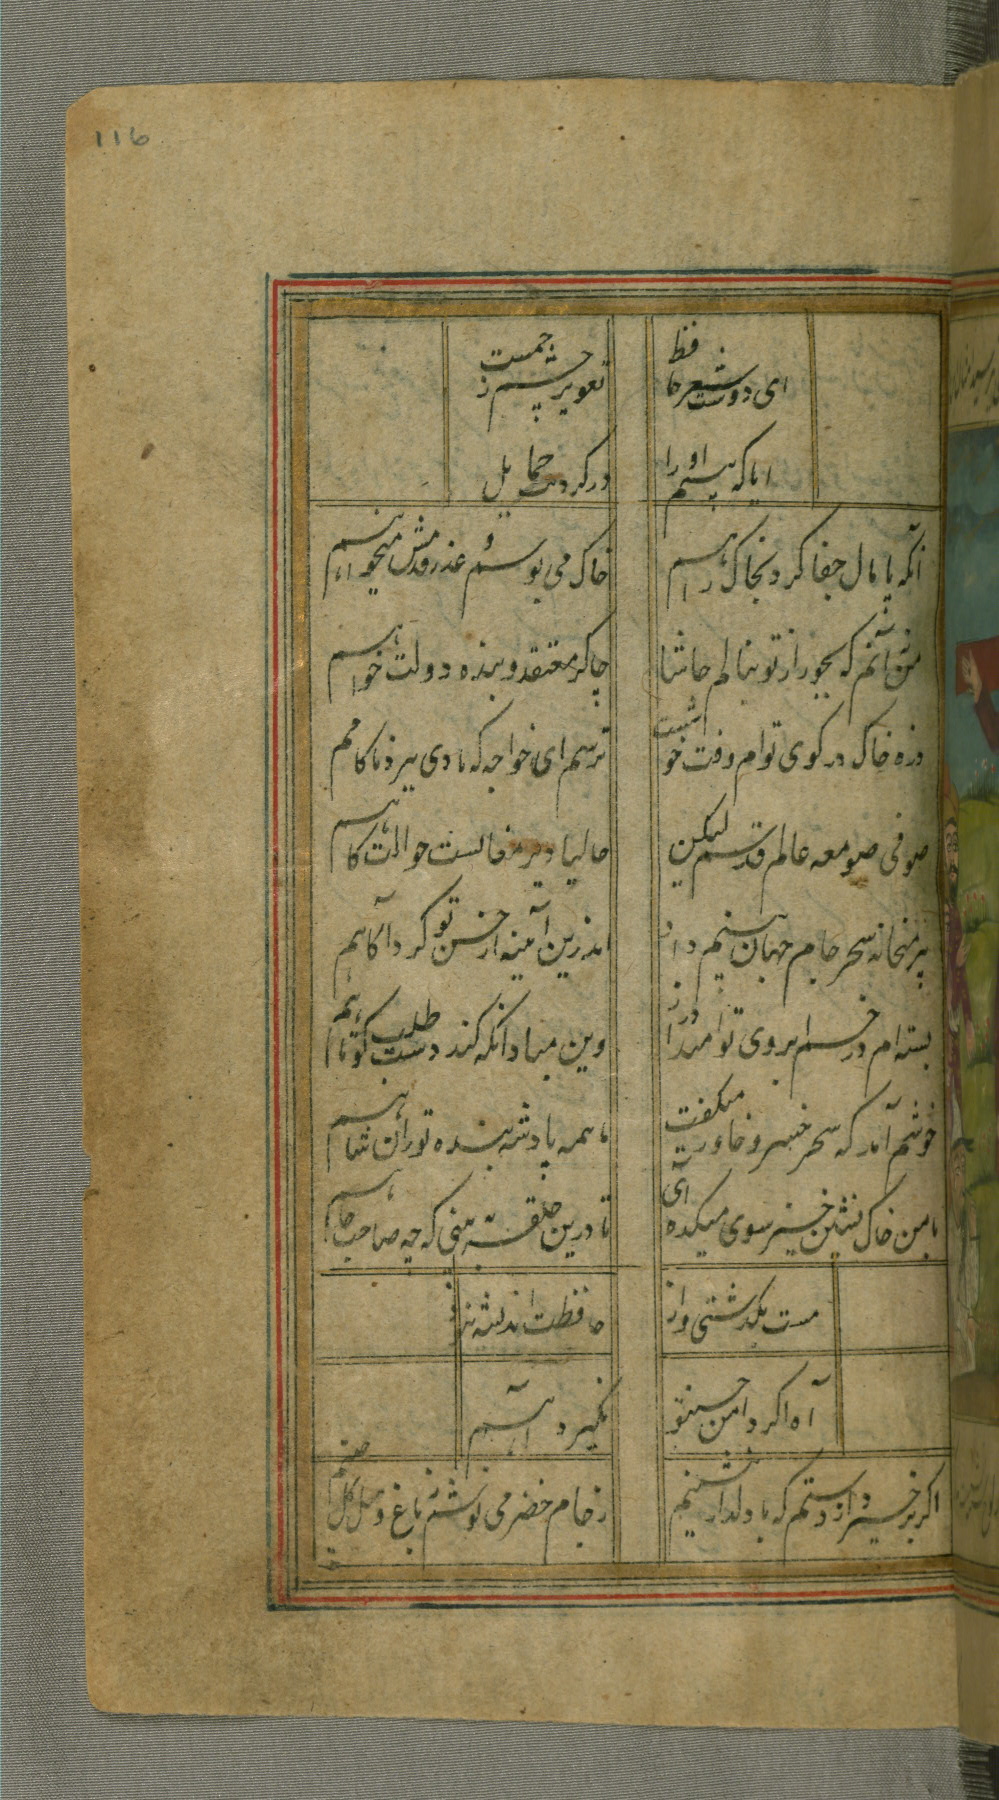 116
ای دوست شعر حافظ
تعویذ چشم زخمست
ایا که بینم او را
در گردنت حمایل
آنکه پامال جفا کرد بخاک راهم
خاک می بوسم و عذر قدمش میخواهم
من نه آنم که بجور از تو بنالم حاشا
چاکر معتقد و بنده دولت خواهم
ذره خاکم در کوی توام وقت خوشست
ترسم ای خواجه که بادی ببرد ناکاهم
صوفی صومعه عالم قدسم لیکن
حالیا دیر مغانست حوالت کاهم
پیر میخانه سحر جام جهان بینم داد
اندرین آینه از حسن تو کرد آکاهم
بسته ام در خم ابروی تو امید دراز
وین مبادا که کند دست طلب کوتاهم
خوشم آمد که سحر خسرو خاور میکفت
با همه پادشهی بنده توران شاهم
با من خاک نشین خیز سوی میکده آی
تا درین حلقه ببینی که چه صاحب جاهم
مست بکذشتی و از
حافظت اندیشه نبود
آه اکر دامن حسن تو
بکیرد آهم
اکر برخیزد از دستم که با دلدار بنشینم
ز جام خضر می نوشم ز باغ وصل کل چینم